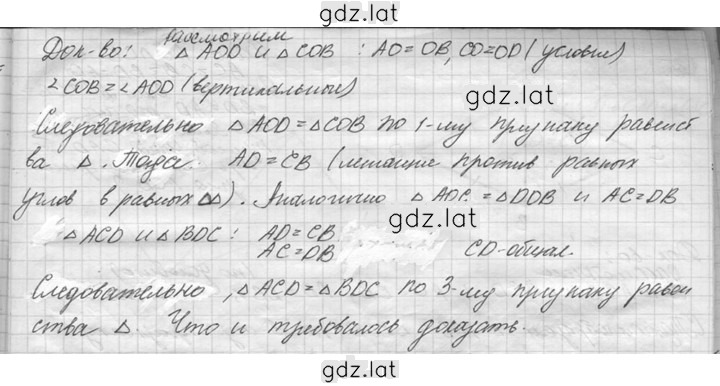 gdz.lat
рассмотрим
Док-во: △ AOD и △ COB : AO = OB, CO = OD (условия)
∠COB = ∠AOD (вертикальные)
gdz.lat
Следовательно △ AOD = △ COB по 1-му признаку равенст
ва △. Тогда. AD = CB (лежащие против равных
углов в равных △△). Аналогично △ AOC = △ DOB и AC = DB
gdz.lat
△ ACD и △ BDC : AD = CB
AC = DB CD - общая.
Следовательно, △ ACD = △ BDC по 3-му признаку равен
ства △. Что и требовалось доказать.
gdz.lat